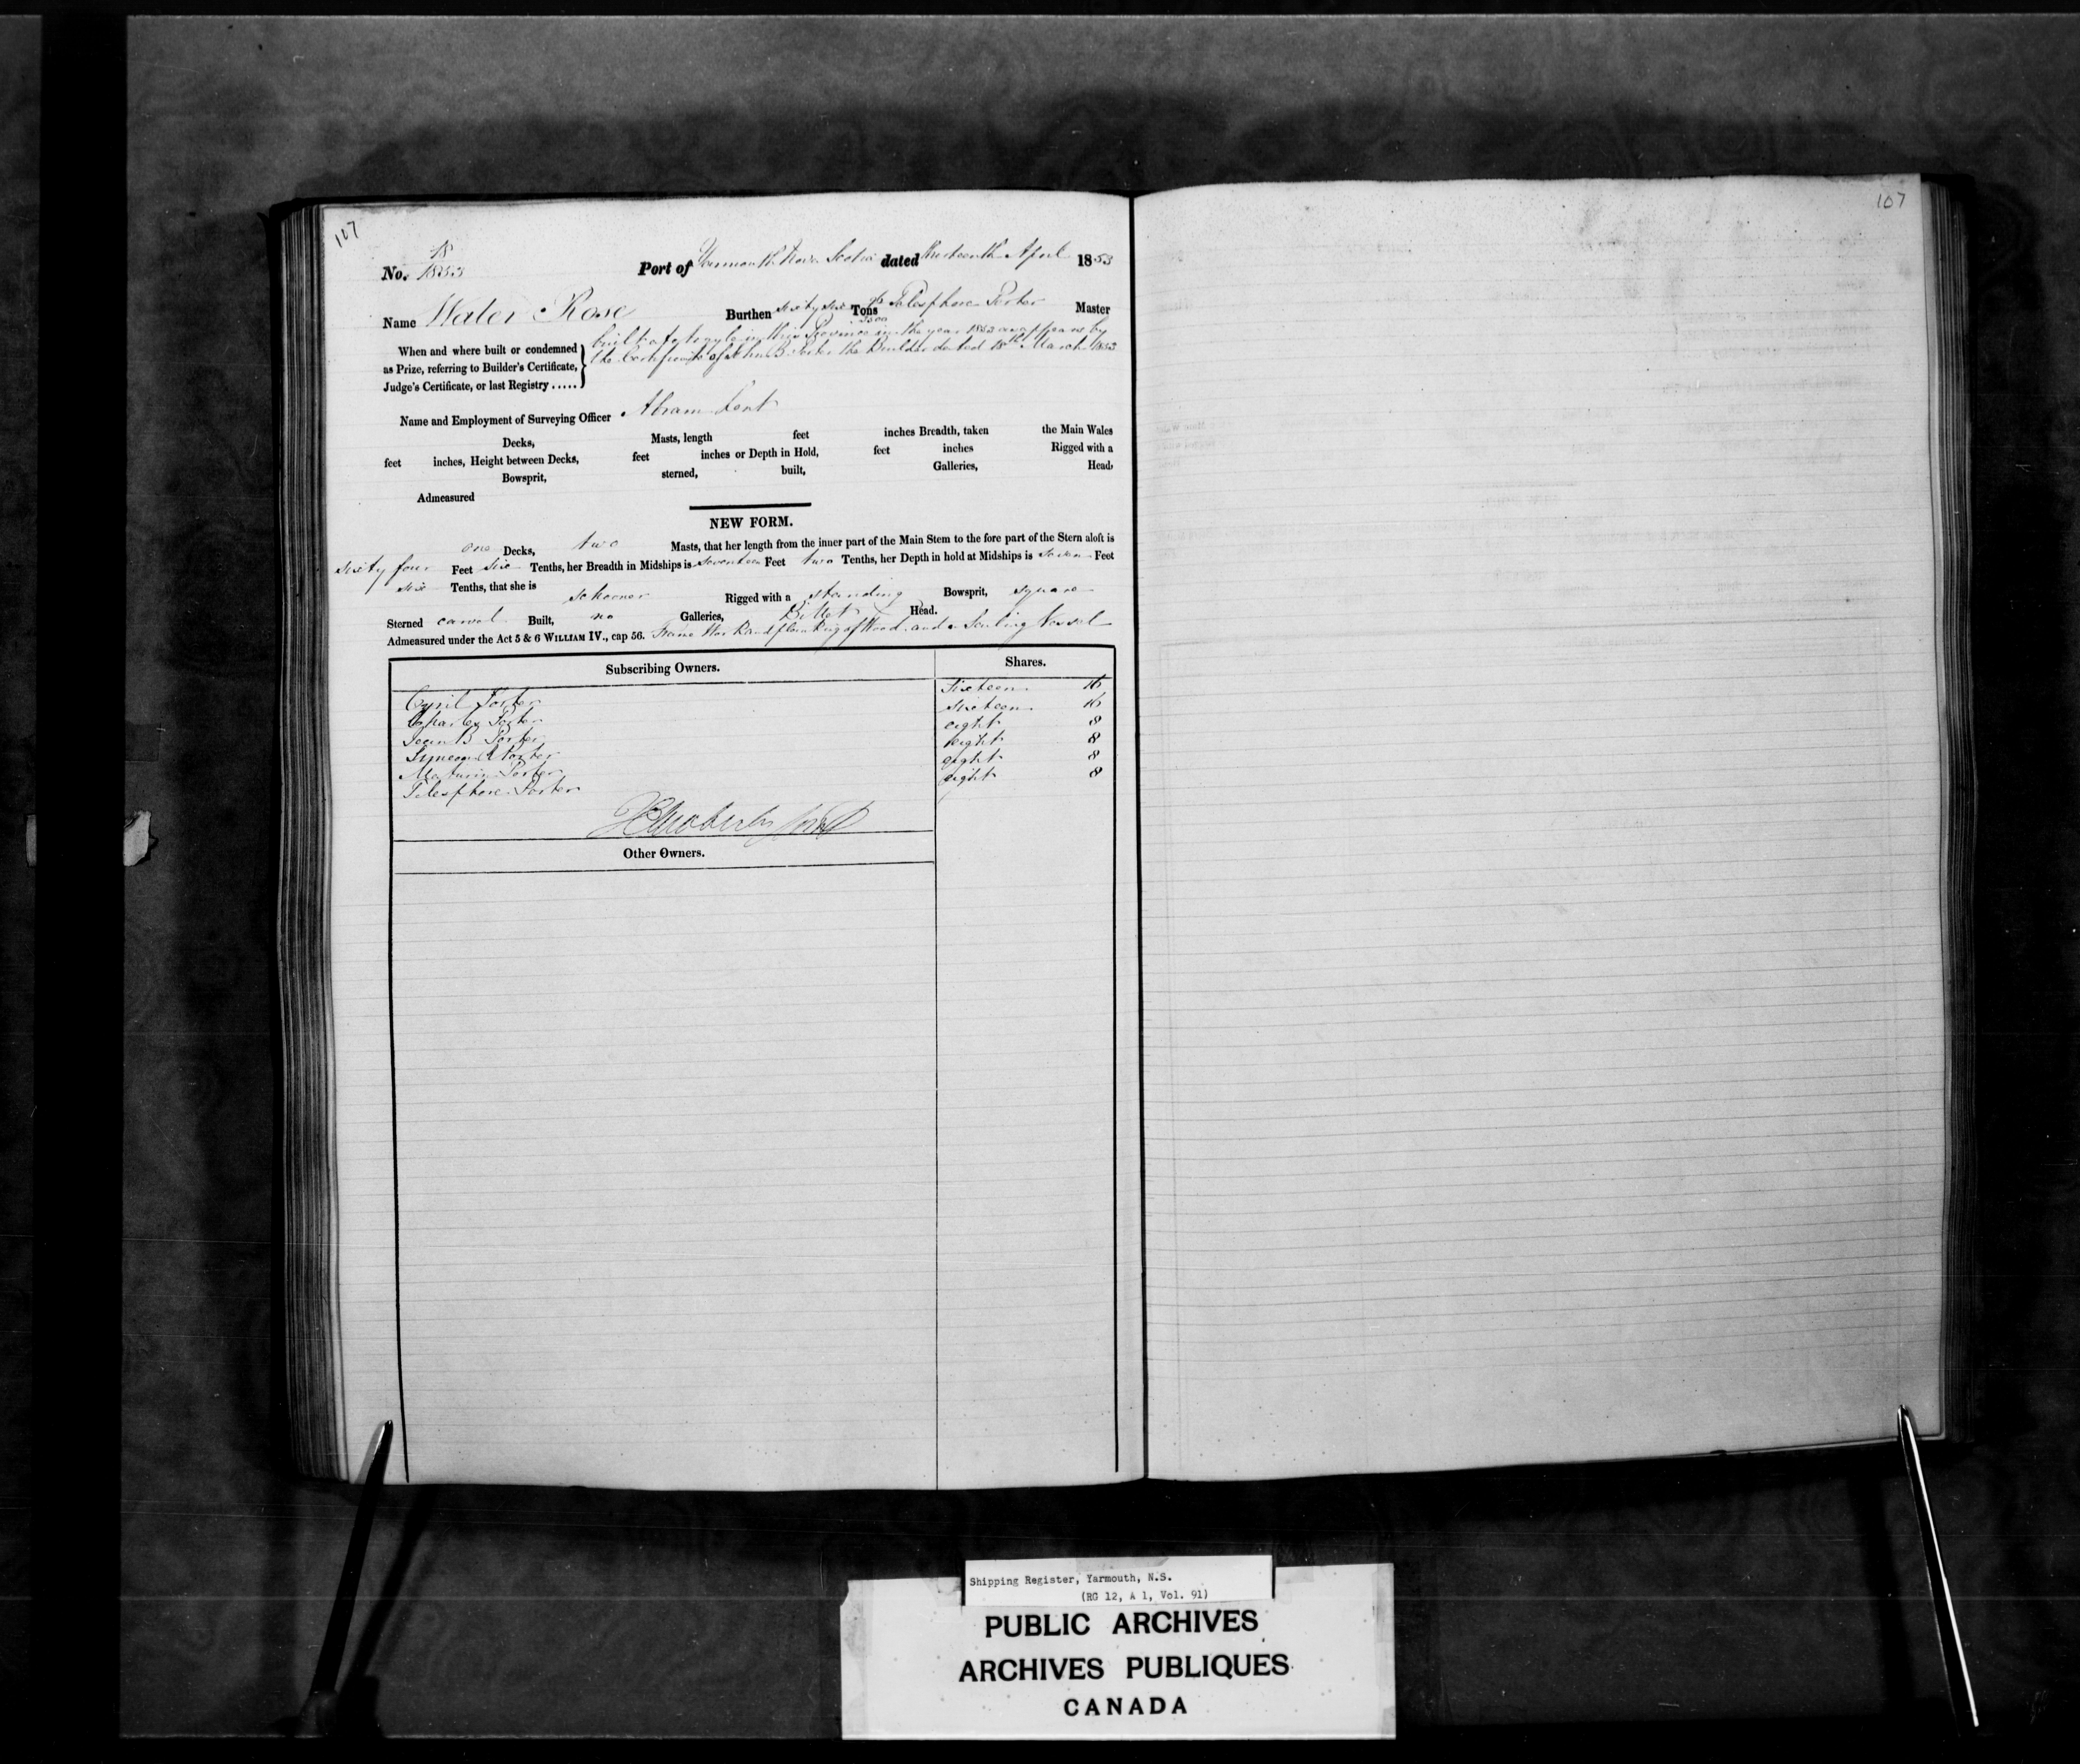 107
107
18
No. 1853
Port of Yarmouth Nova Scotia dated thirteenth April 1853
Name Water Rose Burthen sixty six Tons Telesphore Porter Master
3500
When and where built or condemned
as Prize, referring to Builder's Certificate,
Judge's Certificate, or last Registry .....
built at in this Province in the year 1853 as appears by
the Certificate of John B. Porter the Builder dated 18th March 1853
Name and Employment of Surveying Officer Abram Lent
Decks, Masts, length feet inches Breadth, taken the Main Wales
feet inches, Height between Decks, feet inches or Depth in Hold, feet inches Rigged with a
Bowsprit, sterned, built, Galleries, Head,
Admeasured
NEW FORM.
one Decks, two Masts, that her length from the inner part of the Main Stem to the fore part of the Stern aloft is
sixty four Feet six Tenths, her Breadth in Midships is seventeen Feet two Tenths, her Depth in hold at Midships is seven Feet
six Tenths, that she is schooner Rigged with a standing Bowsprit, square
Sterned carvel Built, no Galleries, Billet Head.
Admeasured under the Act 5 & 6 WILLIAM IV., cap 56. Frame Work and planking of Wood and a Sailing Vessel
Subscribing Owners. Shares.
Cyril Porter sixteen 16
Charles Porter sixteen 16
Jean B Porter eight 8
Simeon Porter eight 8
Maturin Porter eight 8
Telesphore Porter eight 8
Other Owners.
Shipping Register, Yarmouth, N.S.
(RG 12, A 1, Vol. 91)
PUBLIC ARCHIVES
ARCHIVES PUBLIQUES
CANADA